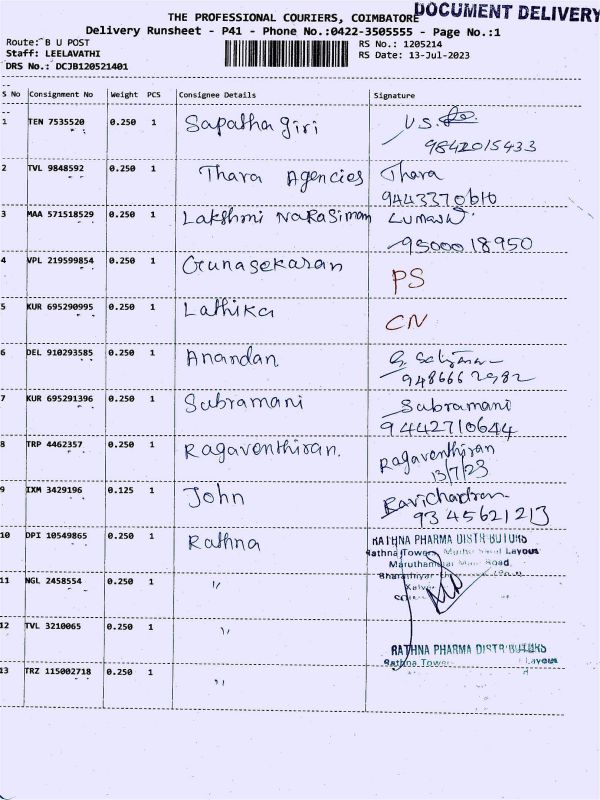 DOCUMENT DELIVERY
THE PROFESSIONAL COURIERS, COIMBATORE
Delivery Runsheet - P41 - Phone No.:0422-3505555 - Page No.:1
Route: B U POST
RS No.: 1205214
Staff: LEELAVATHI
RS Date: 13-Jul-2023
DRS No.: DCJB120521401
S No Consignment No Weight PCS Consignee Details Signature
1 TEN 7535520 0.250 1 Sapatha giri U.S.
9842015433
2 TVL 9848592 0.250 1 Thara Agencies Thara
9443370610
3 MAA 571518529 0.250 1 Lakshmi Narasimam
9500018950
4 VPL 219599854 0.250 1 Gunasekaran PS
5 KUR 695290995 0.250 1 Lathika CN
6 DEL 910293585 0.250 1 Anandan
9486662982
7 KUR 695291396 0.250 1 Subramani Subramani
9442710644
8 TRP 4462357 0.250 1 Ragaventhiran. Ragaventhiran
13/7/23
9 IXM 3429196 0.125 1 John Ravichadran
9345621213
10 DPI 10549865 0.250 1 Rathna RATHNA PHARMA DISTRIBUTORS
Rathna Towers Layout
Maruthamalai Main Road
11 NGL 2458554 0.250 1 "
12 TVL 3210065 0.250 1 "
RATHNA PHARMA DISTRIBUTORS
Rathna Tower Layout
13 TRZ 115002718 0.250 1 "